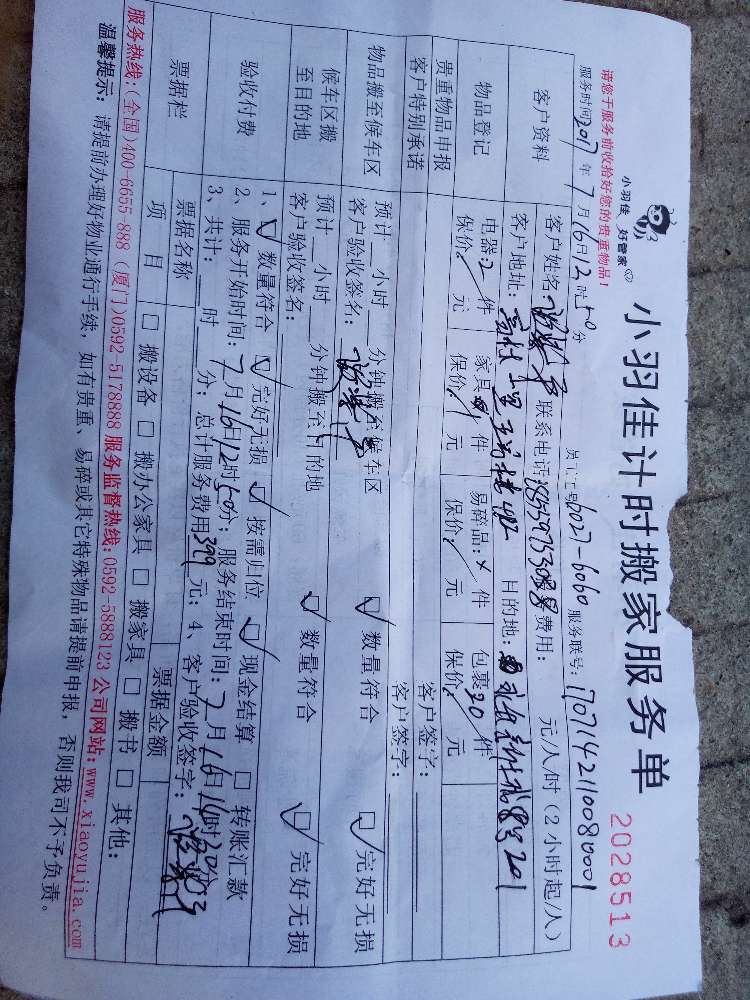 小羽佳 好管家
小羽佳计时搬家服务单
2028513
请您于服务前收拾好您的贵重物品！
服务时间2017年7月16日12时50分 员工工号6027-6060 服务联号:1707142110080001
客户资料
客户姓名: 联系电话: 费用: 元/人/时 (2小时起/人)
客户地址: 目的地:
物品登记
电器:2件 家具 件 易碎品: 件 包裹30件
保价: 元 保价: 元 保价: 元 保价: 元
贵重物品申报
客户签字:
客户特别承诺
客户签字:
物品搬至候车区
预计 小时 分钟搬至候车区
客户验收签名: ☑ 数量符合 ☑ 完好无损
候车区搬至目的地
预计 小时 分钟搬至目的地
客户验收签名: ☑ 数量符合 ☑ 完好无损
验收付费
1、☑ 数量符合 ☑ 完好无损 ☑ 按需归位 ☑ 现金结算 □ 转账汇款
2、服务开始时间:7月16日12时50分; 服务结束时间:7月16日16时20分
3、共计: 时 分; 总计服务费用399元; 4、客户验收签字:
票据栏
票据名称 票据金额
项目 □ 搬设备 □ 搬办公家具 □ 搬家具 □ 搬书 □ 其他:
服务热线:(全国)400-6655-888 (厦门)0592-5178888 服务监督热线:0592-5888123 公司网站:www.xiaoyujia.com
温馨提示: 请提前办理好物业通行手续, 如有贵重、易碎或其它特殊物品请提前申报, 否则我司不予负责。